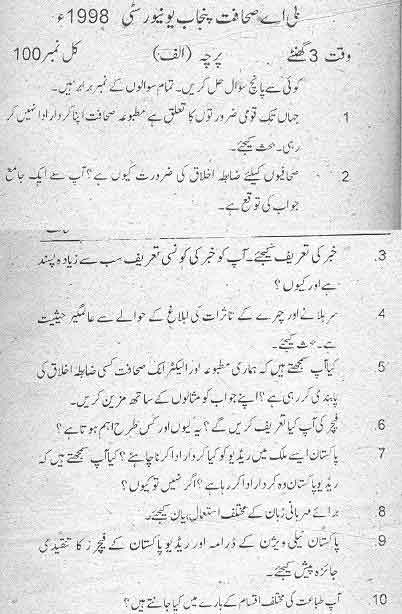 بی اے صحافت پنجاب یونیورسٹی 1998ء
وقت 3 گھنٹے پرچہ (الف) کل نمبر 100
کوئی سے پانچ سوال حل کریں۔ تمام سوالوں کے نمبر برابر ہیں۔
1 جہاں تک قومی ضرورتوں کا تعلق ہے مطبوعہ صحافت اپنا کردار ادا نہیں کر
رہی۔ بحث کیجئے۔
2 صحافیوں کیلئے ضابطہ اخلاق کی ضرورت کیوں ہے؟ آپ سے ایک جامع
جواب کی توقع ہے۔
3. خبر کی تعریف کیجئے۔ آپ کو خبر کی کونسی تعریف سب سے زیادہ پسند
ہے اور کیوں؟
4 سر ہلانے اور چہرے کے تاثرات کی ابلاغ کے حوالے سے عالمگیر حیثیت
ہے۔ بحث کیجئے۔
5 کیا آپ سمجھتے ہیں کہ ہماری مطبوعہ اور الیکٹرانک صحافت کسی ضابطہ اخلاق کی
پابندی کر رہی ہے؟ اپنے جواب کو مثالوں کے ساتھ مزین کریں۔
6. فیچر کی آپ کیا تعریف کریں گے؟ یہ کیوں اور کس طرح اہم ہوتا ہے؟
7 پاکستان ایسے ملک میں ریڈیو کو کیا کردار ادا کرنا چاہئے؟ کیا آپ سمجھتے ہیں کہ
ریڈیو پاکستان وہ کردار ادا کر رہا ہے؟ اگر نہیں تو کیوں؟
8 برائے مہربانی زبان کے مختلف استعمال بیان کیجئے۔
9. پاکستان ٹیلی ویژن کے ڈرامہ اور ریڈیو پاکستان کے فیچرز کا تنقیدی
جائزہ پیش کیجئے۔
10. آپ طباعت کی مختلف اقسام کے بارے میں کیا جانتے ہیں؟